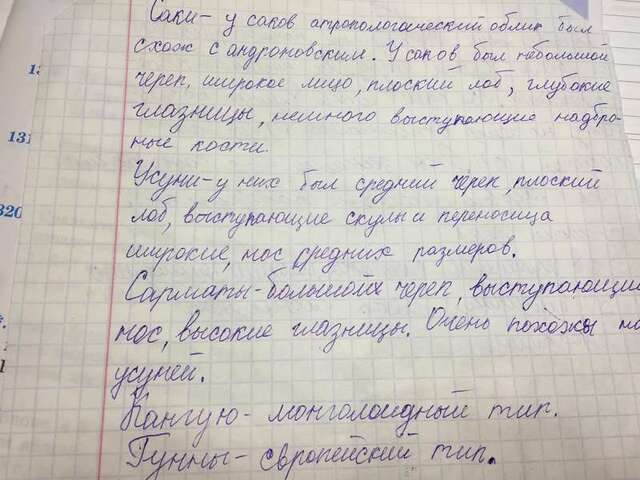 Саки - у саков атропологический облик был
схож с андроновским. У саков был небольшой
череп, широкое лицо, плоский лоб, глубокие
глазницы, немного выступающие надбро-
ные кости.
Усуни - у них был средний череп, плоский
лоб, выступающие скулы и переносица
широкие, нос средних размеров.
Сарматы - большой череп, выступающий
нос, высокие глазницы. Очень похожы на
усуней.
Кангую - монголоидный тип.
Гунны - европейский тип.
131
320